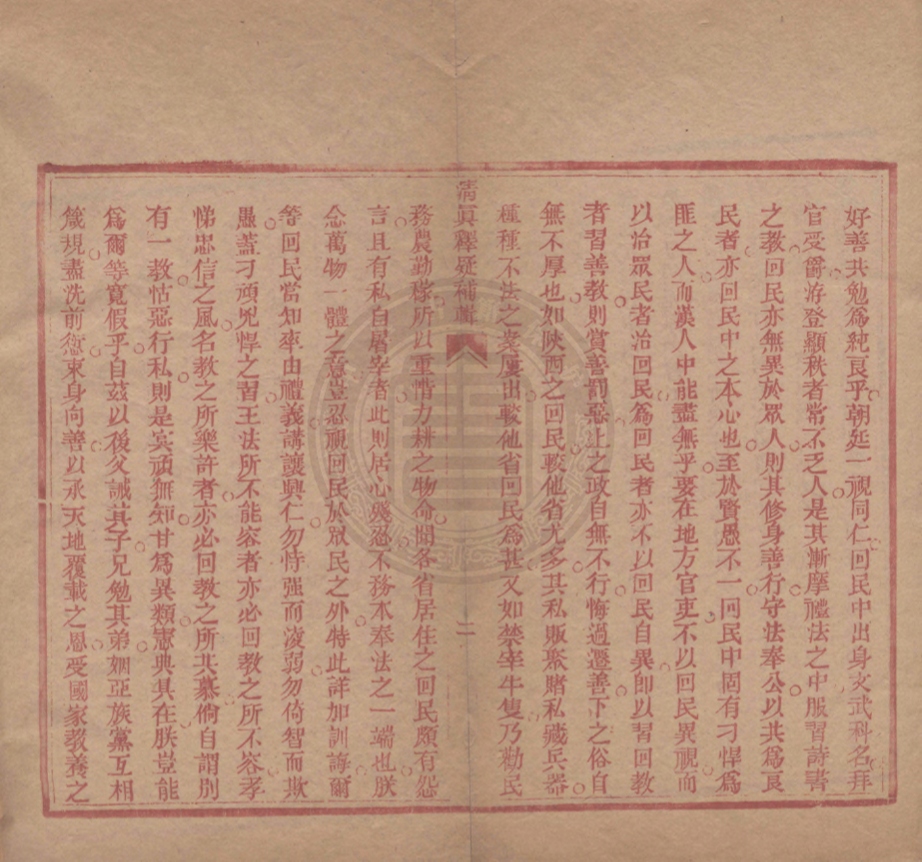 好善共勉爲純良乎朝廷一視同仁回民中出身文武科名拜
官受爵游登顯秩者常不乏人是其漸摩禮法之中服習詩書
之教回民亦無異於眾人則其修身善行守法奉公以共爲良
民者亦回民中之本心也至於賢愚不一回民中固有刁悍爲
匪之人而漢人中能盡無乎要在地方官吏不以回民異視而
以治眾民者治回民爲回民者亦不以回民自異即以習回教
者習善教則賞善罰惡上之政自無不行悔過遷善下之俗自
無不厚也如陝西之回民較他省尤多其私販聚賭私藏兵器
種種不法之案屢出較他省回民爲甚又如禁宰牛隻乃勸民
清眞釋疑補輯
二
務農勤稼所以重惜力耕之物命聞各省居住之回民頗有怨
言且有私自屠宰者此則居心殘忍不務本奉法之一端也朕
念萬物一體之意豈忍視回民於眾民之外特此詳加訓誨爾
等回民當知率由禮義講讓興仁勿恃强而凌弱勿倚智而欺
愚蓋刁頑兇悍之習王法所不能容者亦必回教之所不容孝
悌忠信之風名教之所樂許者亦必回教之所共慕倘自謂別
有一教怙惡行私則是冥頑無知甘爲異類憲典具在朕豈能
爲爾等寬假乎自茲以後父誡其子兄勉其弟姻亞族黨互相
箴規盡洗前愆東身向善以承天地覆載之恩受國家教養之